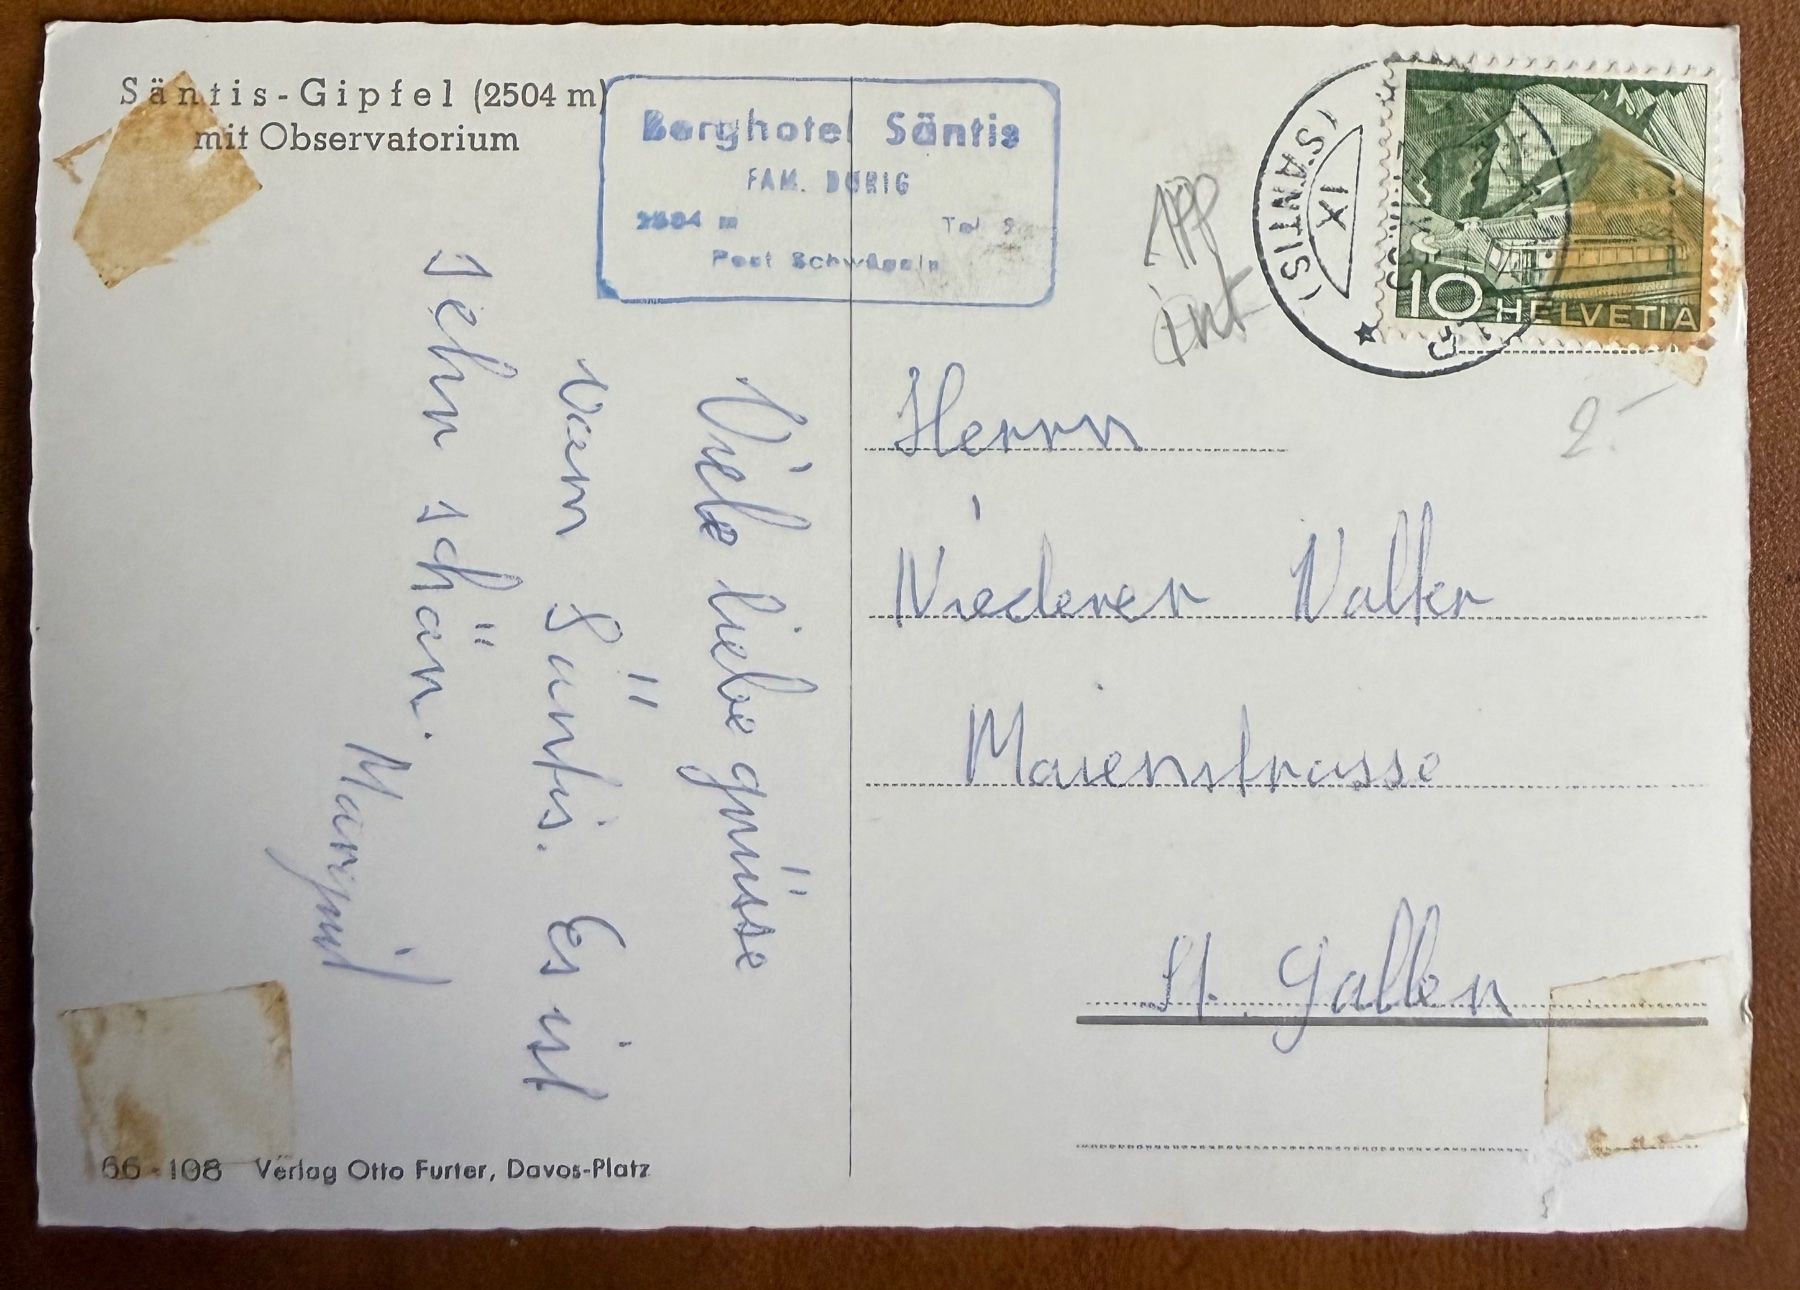 Säntis-Gipfel (2504 m)
mit Observatorium
Berghotel Säntis
FAM. DÖRIG
2504 m Tel
Post Schwägalp
(SÄNTIS)
IX
10 HELVETIA
APP
int
2.-
Viele liebe grüsse
vom Säntis. Es ist
sehr schön.
Herrn
Niederer Walter
Maienstrasse
St. Gallen
66-108 Verlag Otto Furter, Davos-Platz